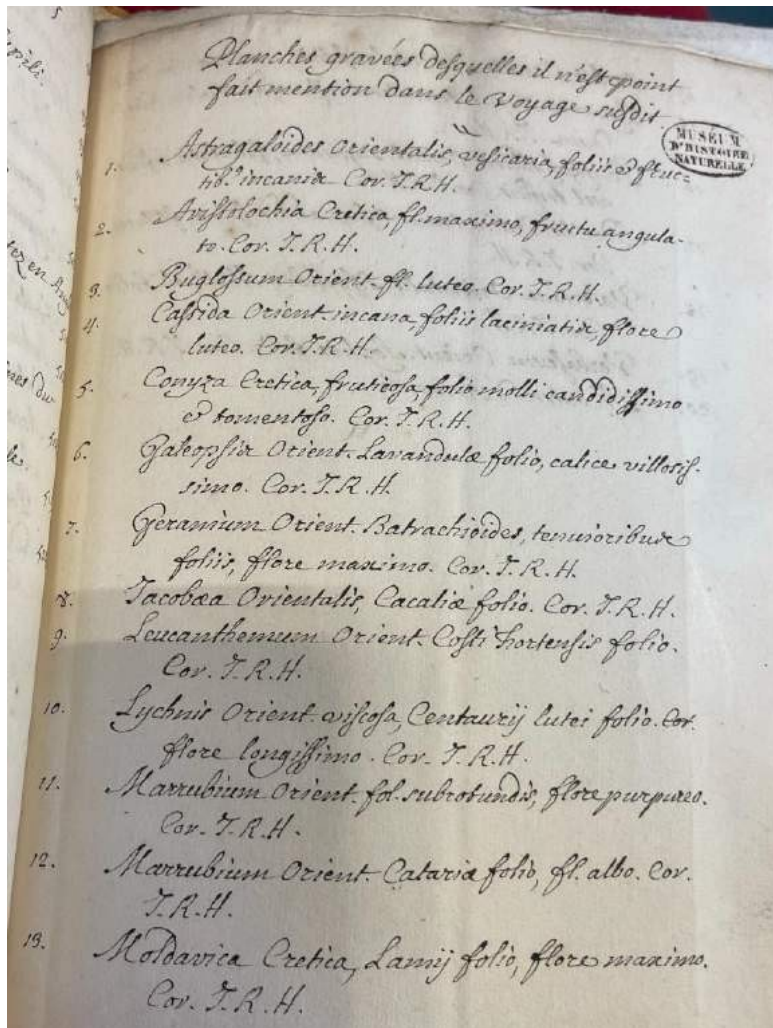 Planches gravées desquelles il n'est point
fait mention dans le Voyage susdit
MUSEUM
D'HISTOIRE
NATURELLE
1. Astragaloides Orientalis, vesicaria, foliis & fruc=
tib.s incanis Cor. I. R. H.
2. Aristolochia Cretica, fl. maximo, fructu angula-
to. Cor. I. R. H.
3. Buglossum Orient. fl. luteo. Cor. I. R. H.
4. Cassida Orient. incana, foliis laciniatis, flore
luteo. Cor. I. R. H.
5. Conyza Cretica, fruticosa, folio molli candidissimo
& tomentoso. Cor. I. R. H.
6. Galeopsis Orient. Lavandulæ folio, calice villosis-
simo. Cor. I. R. H.
7. Geranium Orient. Batrachioides, tenuioribus
foliis, flore maximo. Cor. I. R. H.
8. Jacobæa Orientalis, Cacaliæ folio. Cor. I. R. H.
9. Leucanthemum Orient. Costi hortensis folio.
Cor. I. R. H.
10. Lychnis Orient. viscosa, Centaurij lutei folio. Cor.
flore longissimo. Cor. I. R. H.
11. Marrubium Orient. fol. subrotundis, flore purpureo.
Cor. I. R. H.
12. Marrubium Orient. Catariæ folio, fl. albo. Cor.
I. R. H.
13. Moldavica Cretica, Lamij folio, flore maximo.
Cor. I. R. H.